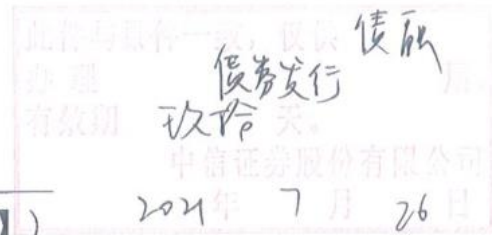 此件与原件一致，仅供 债融
办理 债券发行 用，
有效期 玖拾 天。
中信证券股份有限公司
2021 年 7 月 26 日